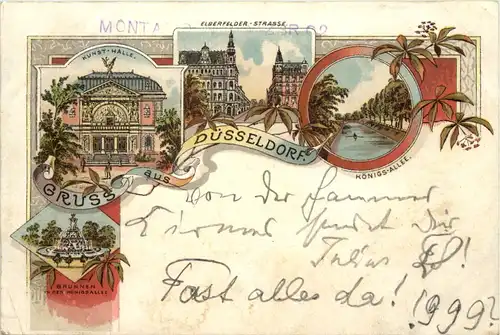 MONTA
ELBERFELDER-STRASSE.
KUNST-HALLE.
GRUSS aus DÜSSELDORF.
KÖNIGS-ALLEE.
BRUNNEN
KÖNIGSALLEE
von der
sendet Dir
Julius
Fast alles da! 1999!